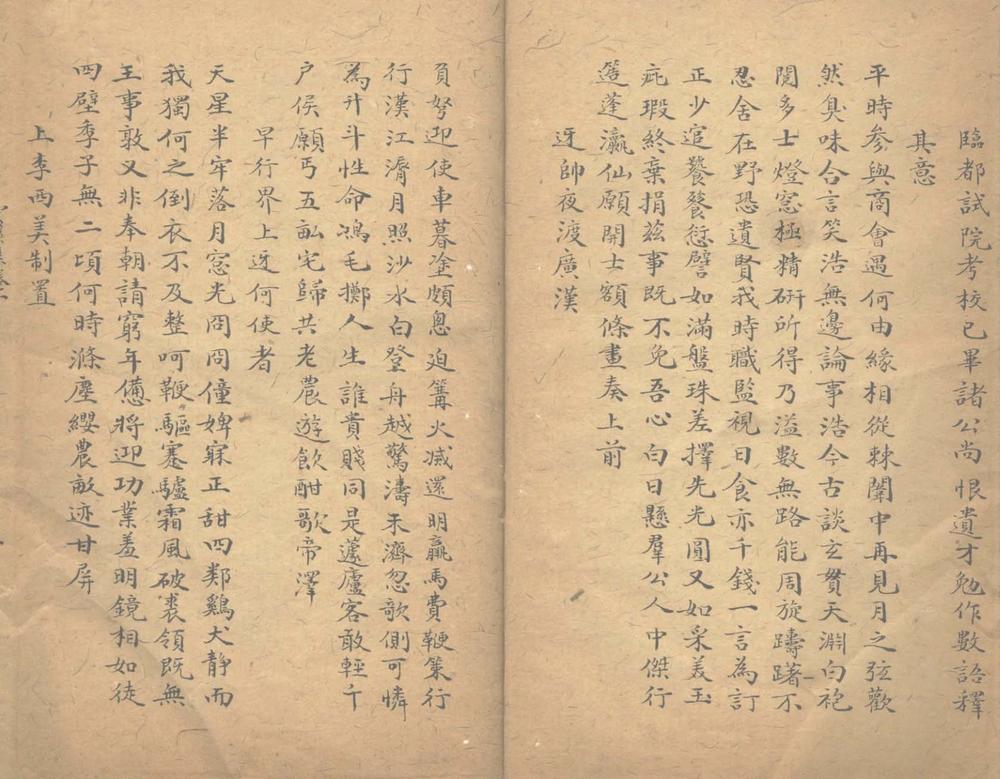 臨都試院考校已畢諸公尚恨遺才勉作數語釋
其意
平時參與商會遇何由緣相從棘闈中再見月之弦歡
然臭味合言笑浩無邊論事浩今古談玄貫天淵白袍
閱多士燈窓極精研所得乃溢數無路能周旋躊躇不
忍舍在野恐遺賢我時職監視日食亦千錢一言為訂
正少逭饔餮愆譬如滿盤珠差擇先光圓又如采美玉
疵瑕終棄捐兹事既不免吾心白日懸羣公人中傑行
蓬瀛仙願開士額條畫奏上前
迓帥夜渡廣漢
負弩迎使車暮塗頗怱迫篝火滅還明羸馬費鞭策行
行漢江濆月照沙水白登舟越驚濤未濟忽歌側可憐
為升斗性命鴻毛擲人生誰貴賤同是蘧廬客敢輕千
户侯願丐五畆宅歸共老農遊飲酣歌帝澤
早行界上迓何使者
天星半牢落月窓光冏冏僮婢寐正甜四鄰鷄犬靜而
我獨何之倒衣不及整呵鞭驅蹇驢霜風破裘領既無
王事敦又非奉朝請窮年憊將迎功業羞明鏡相如徒
四壁季子無二頃何時滌塵纓農畝迹甘屏
上李西美制置